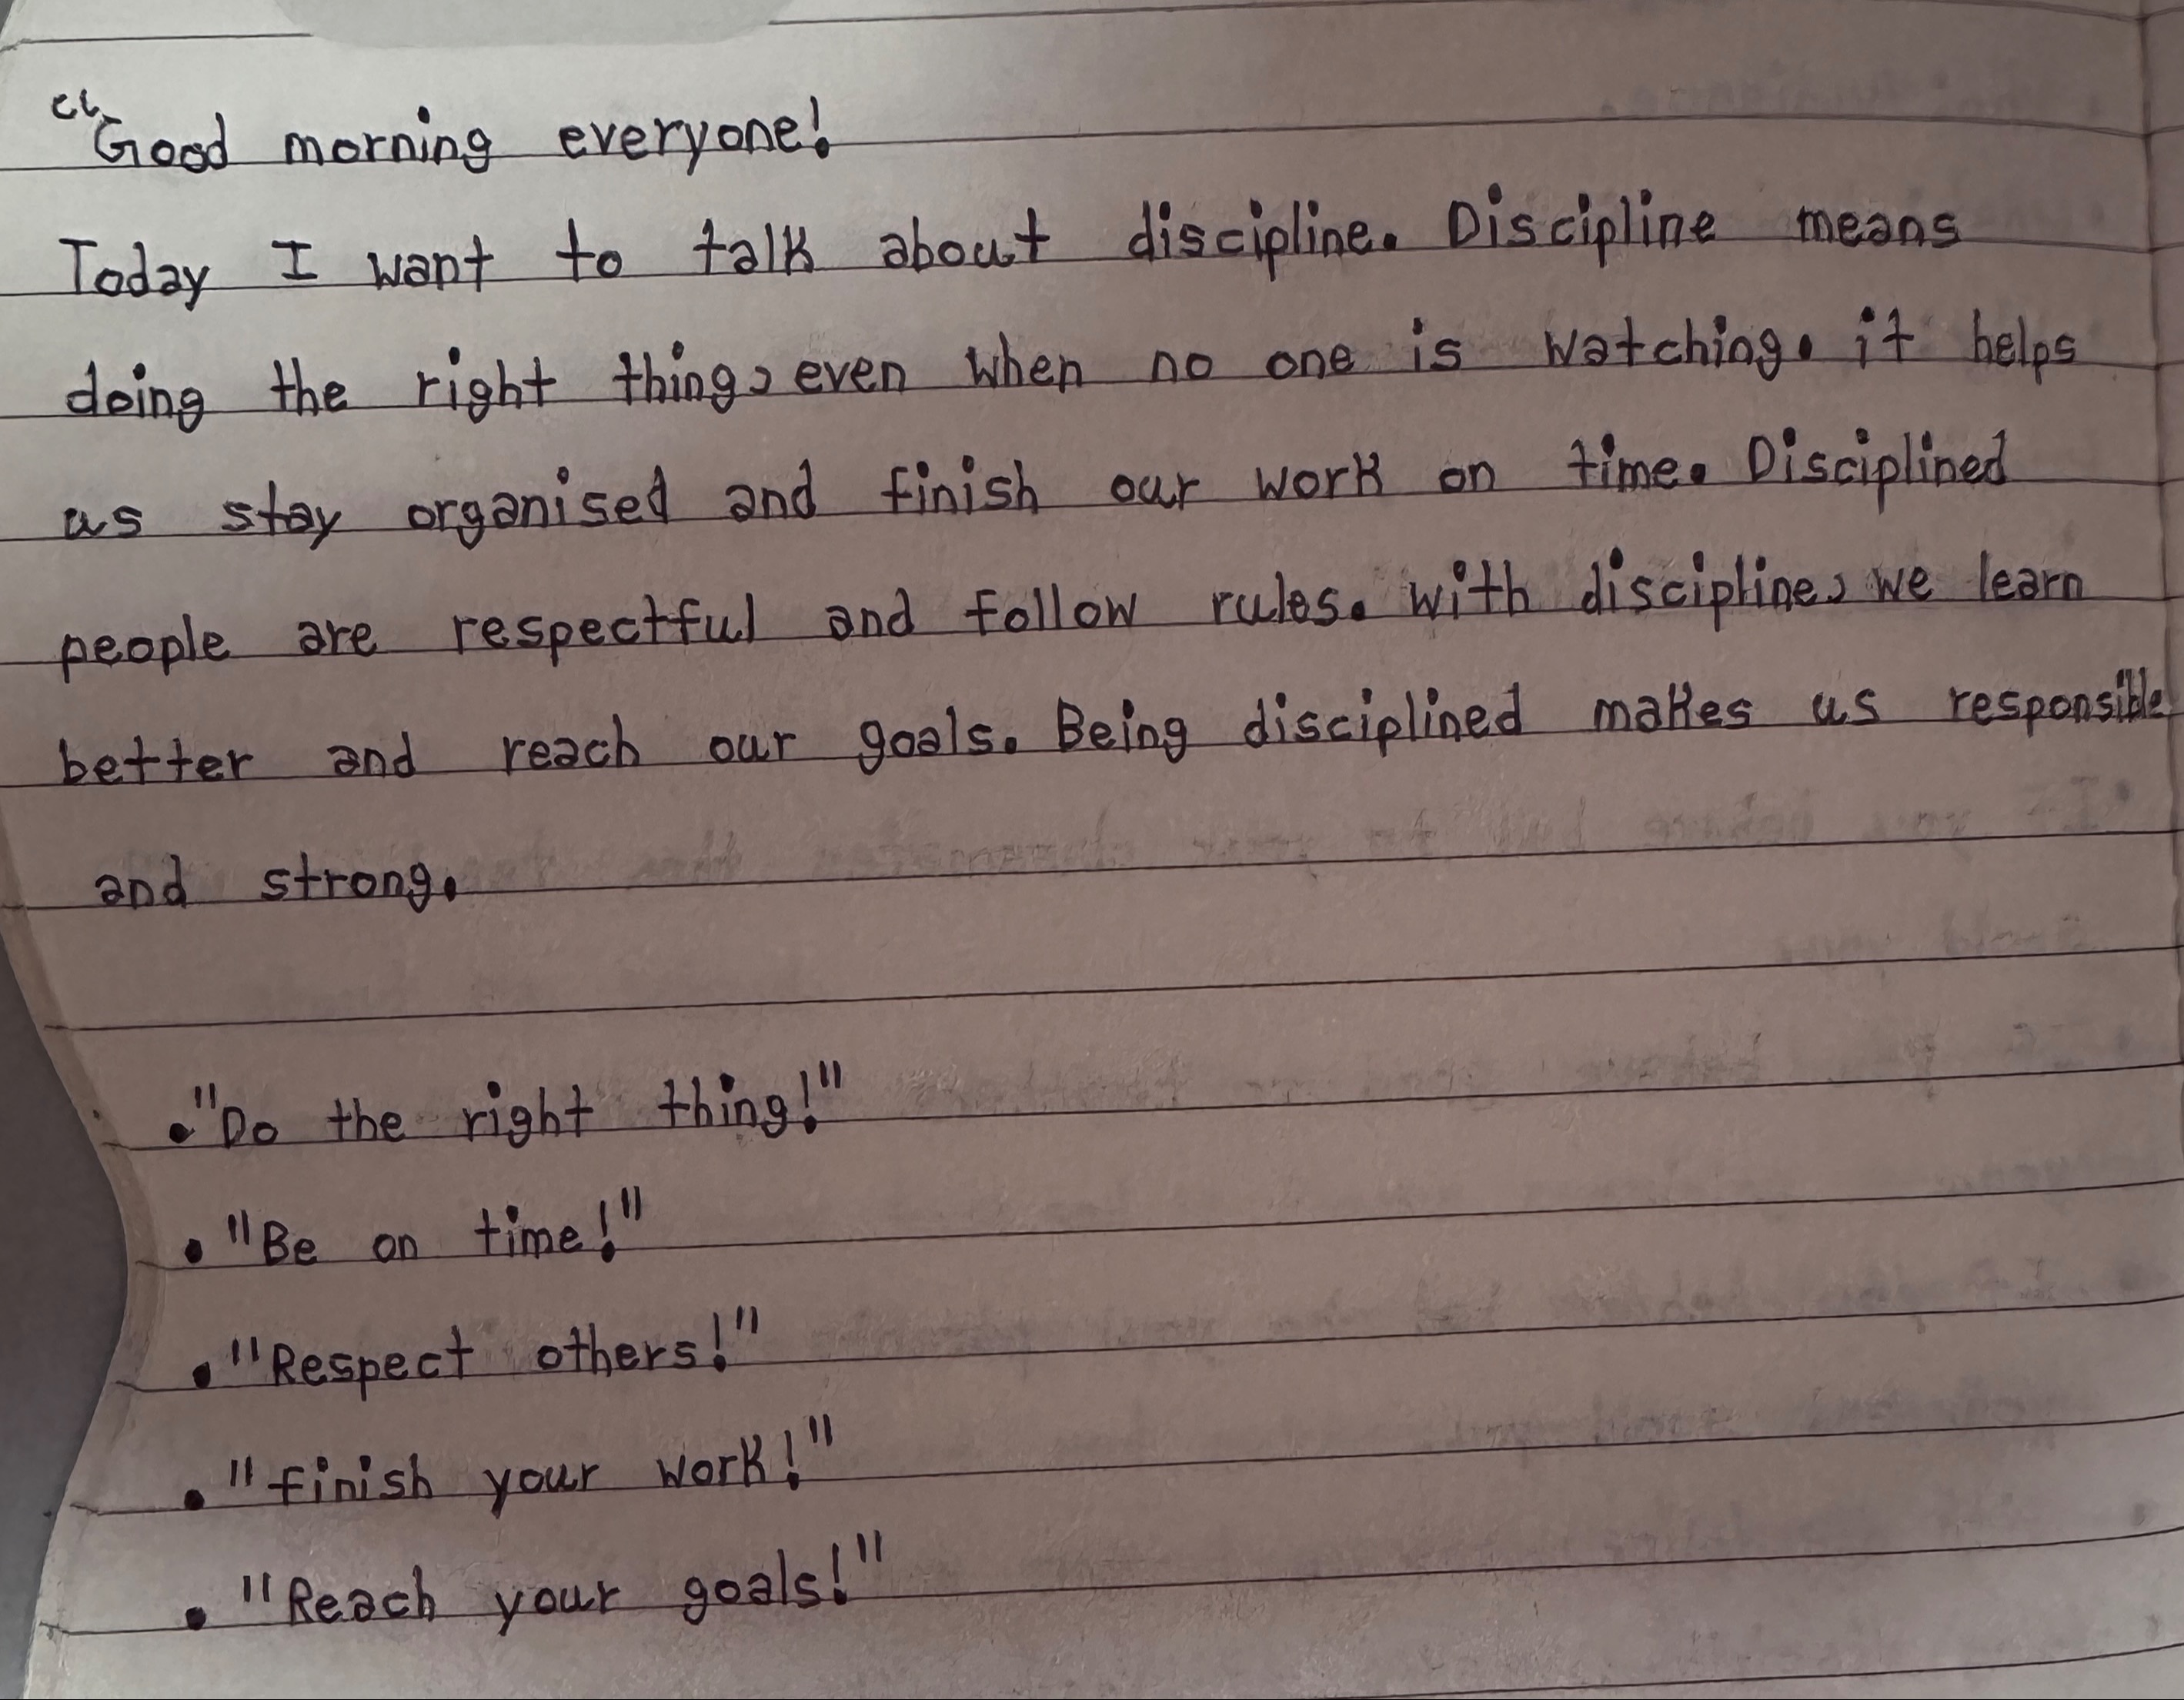 “Good morning everyone!
Today I want to talk about discipline. Discipline means
doing the right thing, even when no one is watching. it helps
us stay organised and finish our work on time. Disciplined
people are respectful and follow rules. With discipline, we learn
better and reach our goals. Being disciplined makes us responsible
and strong.
• "Do the right thing!"
• "Be on time!"
• "Respect others!"
• "finish your work!"
• "Reach your goals!"